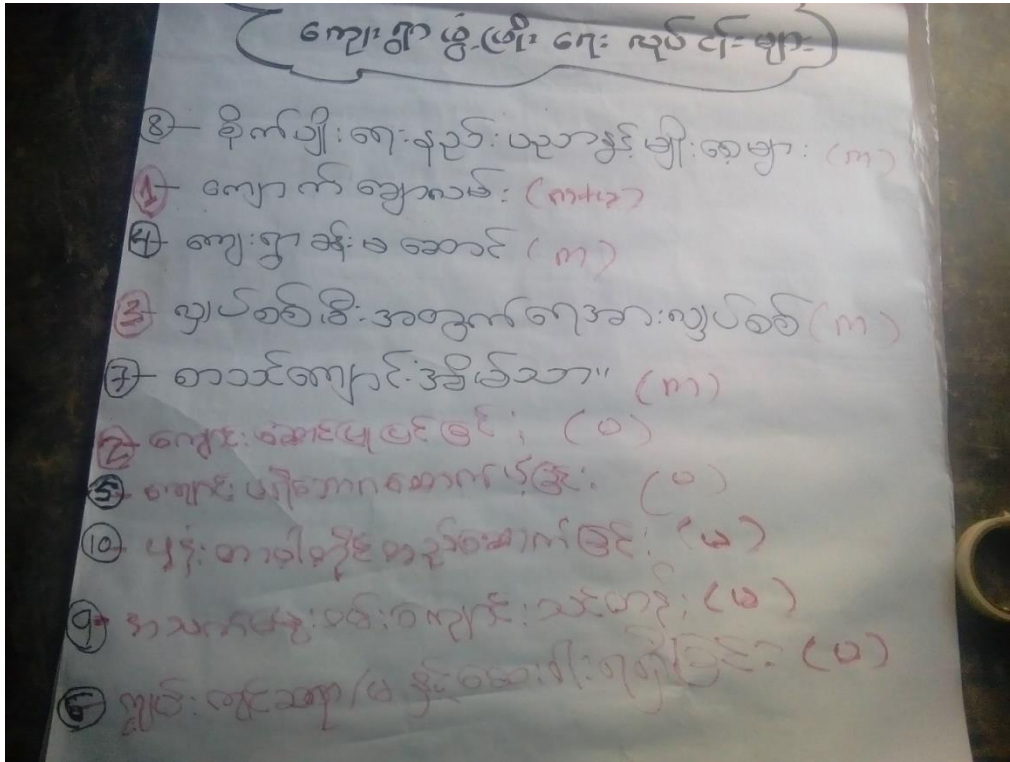 ကျေးရွာဖွံ့ဖြိုးရေးလုပ်ငန်းများ
8 - စိုက်ပျိုးရေးနည်းပညာနှင့်မျိုးစေ့များ (က)
1 - ကျောက်ချောလမ်း (က+ယ)
4 - ကျေးရွာခန်းမဆောင် (က)
3 - လျှပ်စစ်မီးအတွက်ရေအားလျှပ်စစ် (က)
7 - စာသင်ကျောင်းအိမ်သာ။ (က)
2 - ကျောင်းဆောင်ပြုပြင်ခြင်း (ပ)
5 - ကျောင်းပရိဘောဂထောက်ပံ့ခြင်း (ပ)
10 - ဖုန်းတာဝါတိုင်တည်ဆောက်ခြင်း (ယ)
9 - အသက်မွေးဝမ်းကျောင်းသင်တန်း (ယ)
6 - ကျွမ်းကျင်ဆရာ/မနှင့်ဆေးဝါးရရှိခြင်း (ပ)